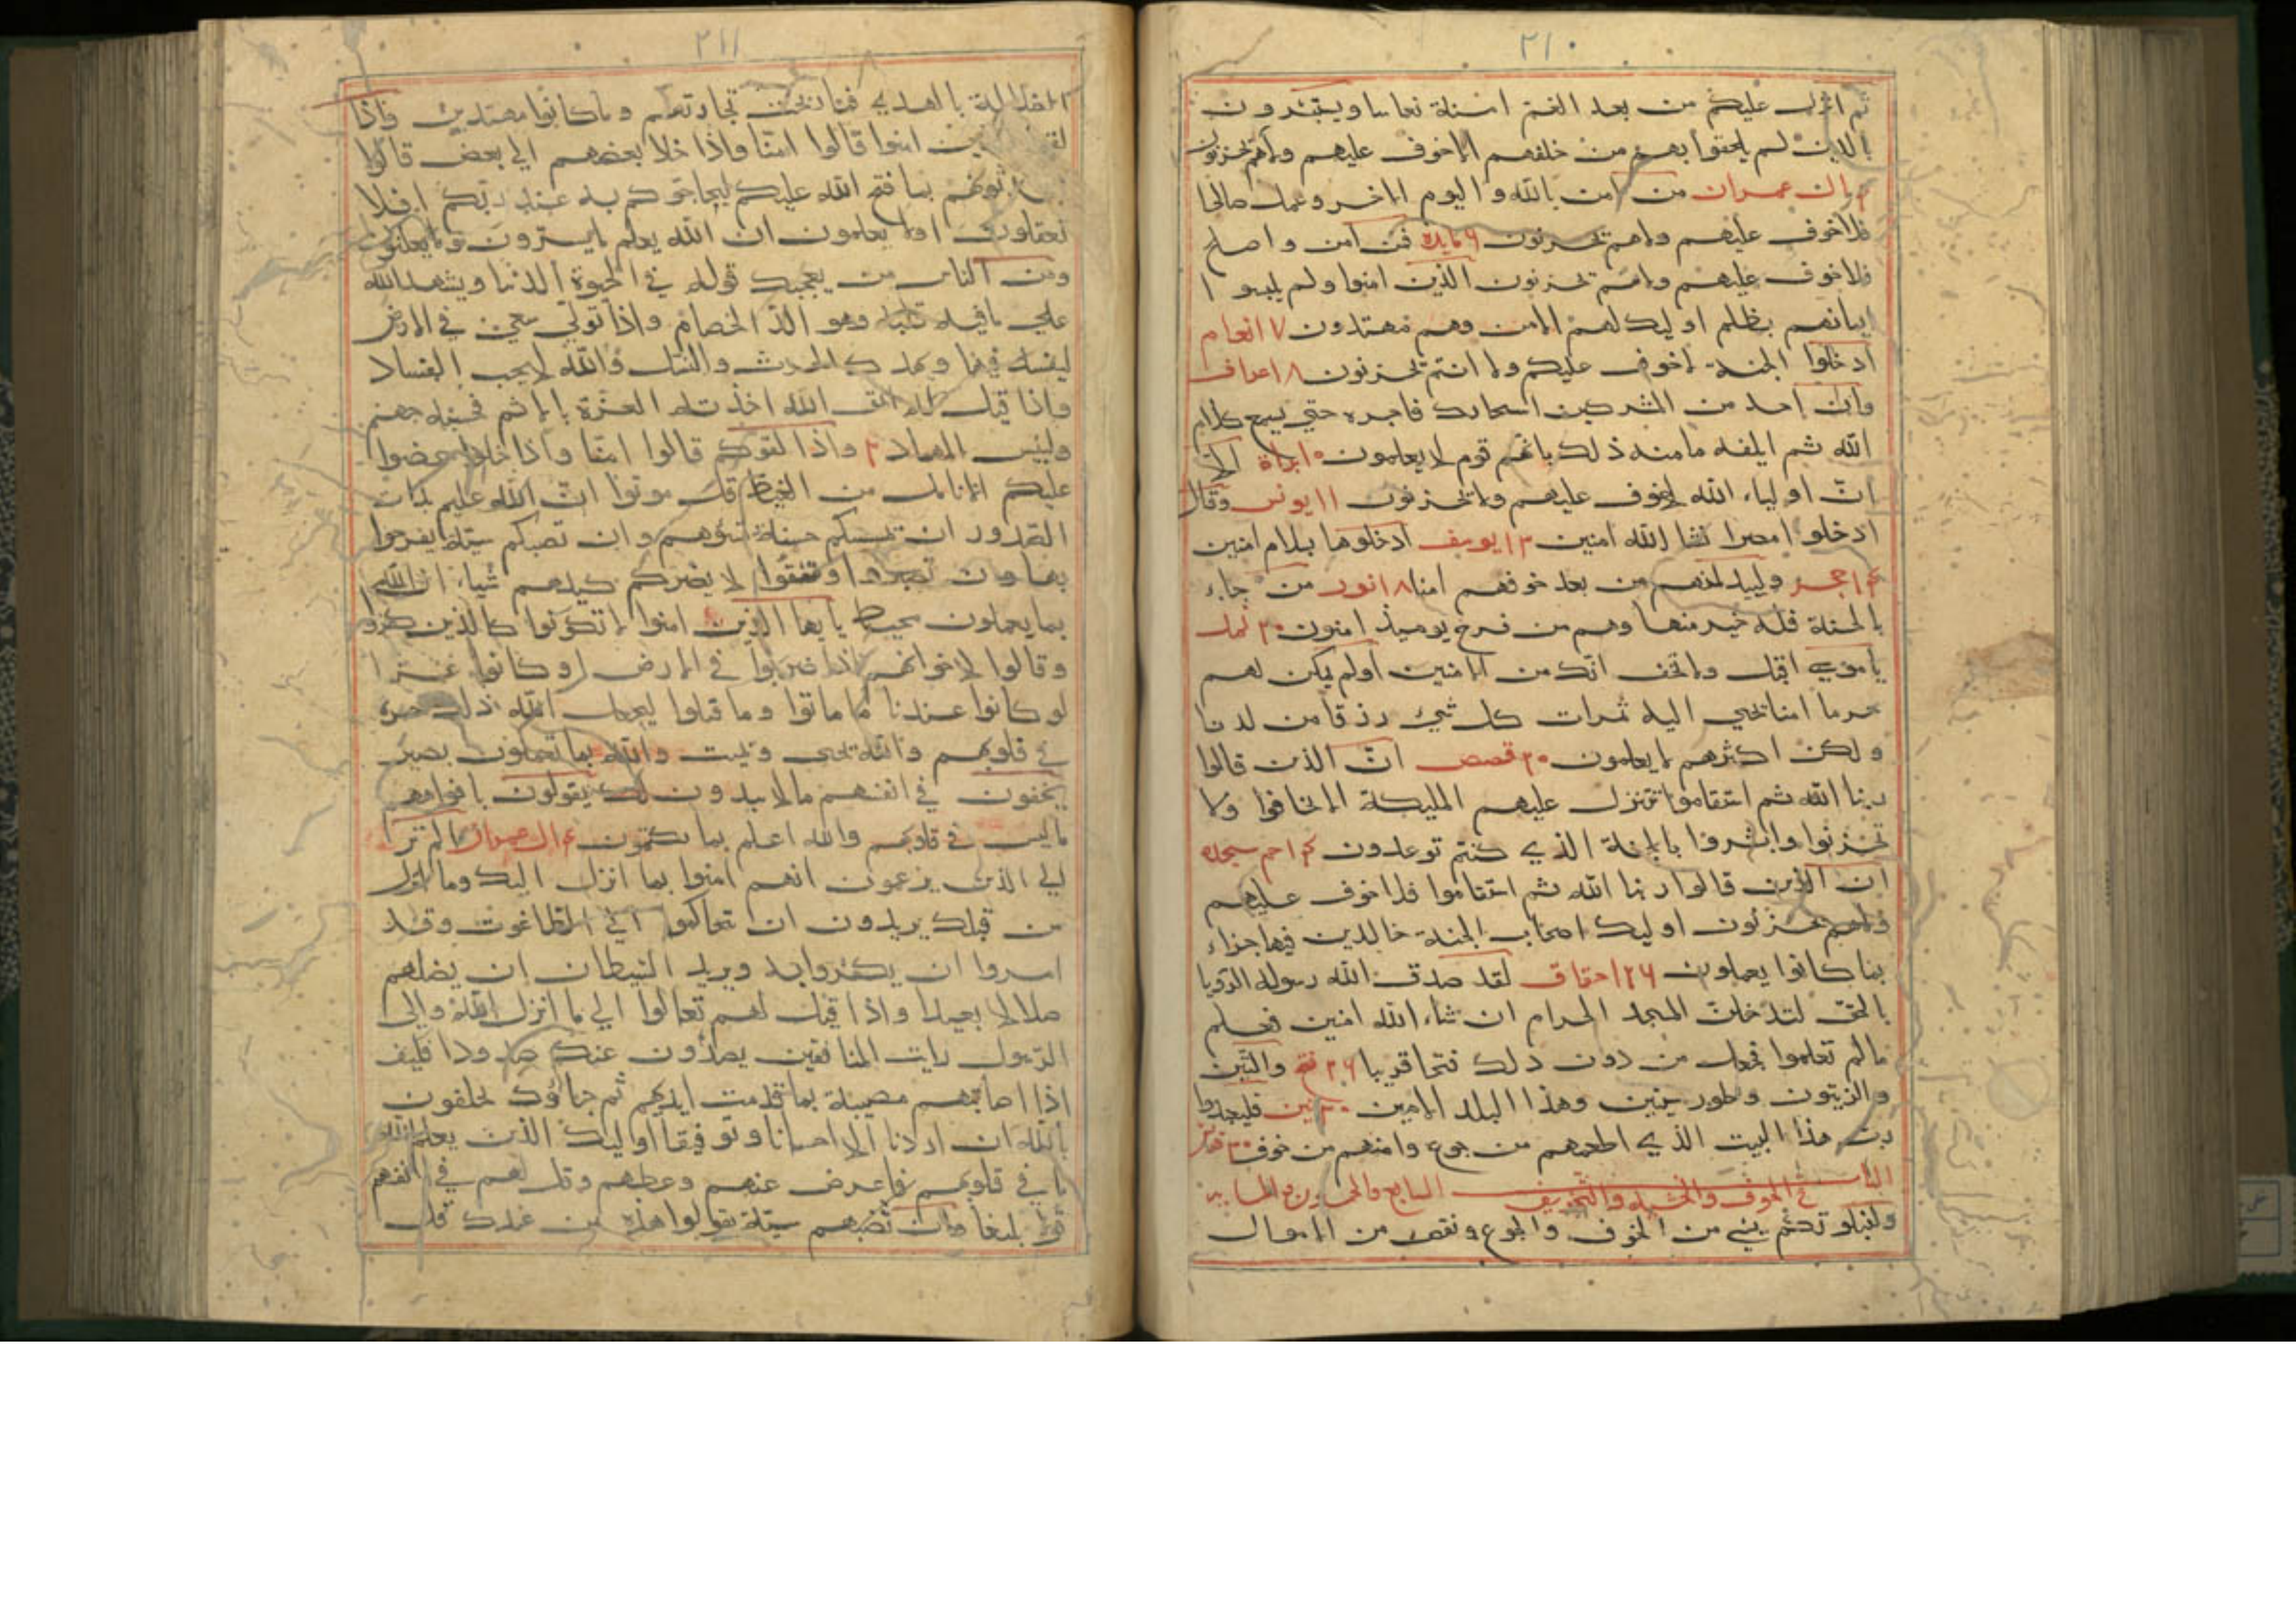 ٢١٠
ثم انزل عليكم من بعد الغم امنة نعاسا ويستبشرون
بالذين لم يلحقوا بهم من خلفهم الا خوف عليهم ولا هم يحزنون
ال عمران من امن بالله واليوم الاخر وعمل صالحا
فلا خوف عليهم ولا هم يحزنون ٦ مايدة فمن امن واصلح
فلا خوف عليهم ولا هم يحزنون الذين امنوا ولم يلبسوا
ايمانهم بظلم اوليك لهم الامن وهم مهتدون ٧ انعام
ادخلوا الجنة لا خوف عليكم ولا انتم تحزنون ٨ اعراف
وان احد من المشركين استجارك فاجره حتي يسمع كلام
الله ثم ابلغه مامنه ذلك بانهم قوم لا يعلمون ١٠ براة الا
ان اولياء الله لا خوف عليهم ولا يحزنون ١١ يونس وقال
ادخلوا مصر ان شا الله امنين ١٣ يوسف ادخلوها بسلام امنين
١٤ حجر وليبدلنهم من بعد خوفهم امنا ١٨ نور من جاء
بالحسنة فله خير منها وهم من فزع يوميذ امنون ٢٠ نمل
يا موسي اقبل ولا تخف انك من الامنين اولم نمكن لهم
حرما امنا يجبي اليه ثمرات كل شيء رزقا من لدنا
ولكن اكثرهم لا يعلمون ٢٠ قصص ان الذين قالوا
ربنا الله ثم استقاموا تتنزل عليهم المليكة الا تخافوا ولا
تحزنوا وابشروا بالجنة الذي كنتم توعدون ٢٤ حم سجده
ان الذين قالوا ربنا الله ثم استقاموا فلا خوف عليهم
ولا هم يحزنون اوليك اصحاب الجنة خالدين فيها جزاء
بما كانوا يعملون ٢٦ احقاف لقد صدق الله رسوله الرويا
بالحق لتدخلن المسجد الحرام ان شاء الله امنين فعلم
مالم تعلموا فجعل من دون ذلك فتحا قريبا ٢٦ فتح والتين
والزيتون وطور سينين وهذا البلد الامين ٣٠ تين فليعبدوا
رب هذا البيت الذي اطعمهم من جوع وامنهم من خوف ٣٠ قريش
الباب السابع والعشرون مع المايه في الخوف والخشية والتخويف
ولنبلونكم بشي من الخوف والجوع ونقص من الاموال
٢١١
الضلالة بالهدي فما ربحت تجارتهم وما كانوا مهتدين واذا
امنوا قالوا امنا واذا خلا بعضهم الي بعض قالوا
بما فتح الله عليكم ليحاجوكم به عند ربكم افلا
تعقلون اولا يعلمون ان الله يعلم ما يسرون وما يعلنون
ومن الناس من يعجبك قوله في الحيوة الدنيا ويشهد الله
علي ما في قلبه وهو الد الخصام واذا تولي سعي في الارض
ليفسد فيها ويهلك الحرث والنسل والله لا يحب الفساد
واذا قيل له اتق الله اخذته العزة بالاثم فحسبه جهنم
ولبيس المهاد ٢ واذا لقوكم قالوا امنا واذا خلوا عضوا
عليكم الانامل من الغيظ قل موتوا ان الله عليم بذات
الصدور ان تمسسكم حسنة تسؤهم وان تصبكم سيئة يفرحوا
بها وان تصبروا وتتقوا لا يضركم كيدهم شيا ان الله
بما يعملون محيط يا ايها الذين امنوا لا تكونوا كالذين كفروا
وقالوا لاخوانهم اذا ضربوا في الارض او كانوا غزا
لو كانوا عندنا ما ماتوا وما قتلوا ليجعل الله ذلك حسرة
في قلوبهم والله يحيي ويميت والله بما تعملون بصير
يخفون في انفسهم ما لا يبدون لك يقولون بافواههم
ما ليس في قلوبهم والله اعلم بما يكتمون ٤ ال عمران الم تر
الي الذين يزعمون انهم امنوا بما انزل اليك وما انزل
من قبلك يريدون ان يتحاكموا الي الطاغوت وقد
امروا ان يكفروا به ويريد الشيطان ان يضلهم
ضلالا بعيدا واذا قيل لهم تعالوا الي ما انزل الله والي
الرسول رايت المنافقين يصدون عنك صدودا فكيف
اذا اصابتهم مصيبة بما قدمت ايديهم ثم جاؤك يحلفون
بالله ان اردنا الا احسانا وتوفيقا اوليك الذين يعلم الله
ما في قلوبهم فاعرض عنهم وعظهم وقل لهم في انفسهم
قولا بليغا وان تصبهم سيئة يقولوا هذه من عندك قل